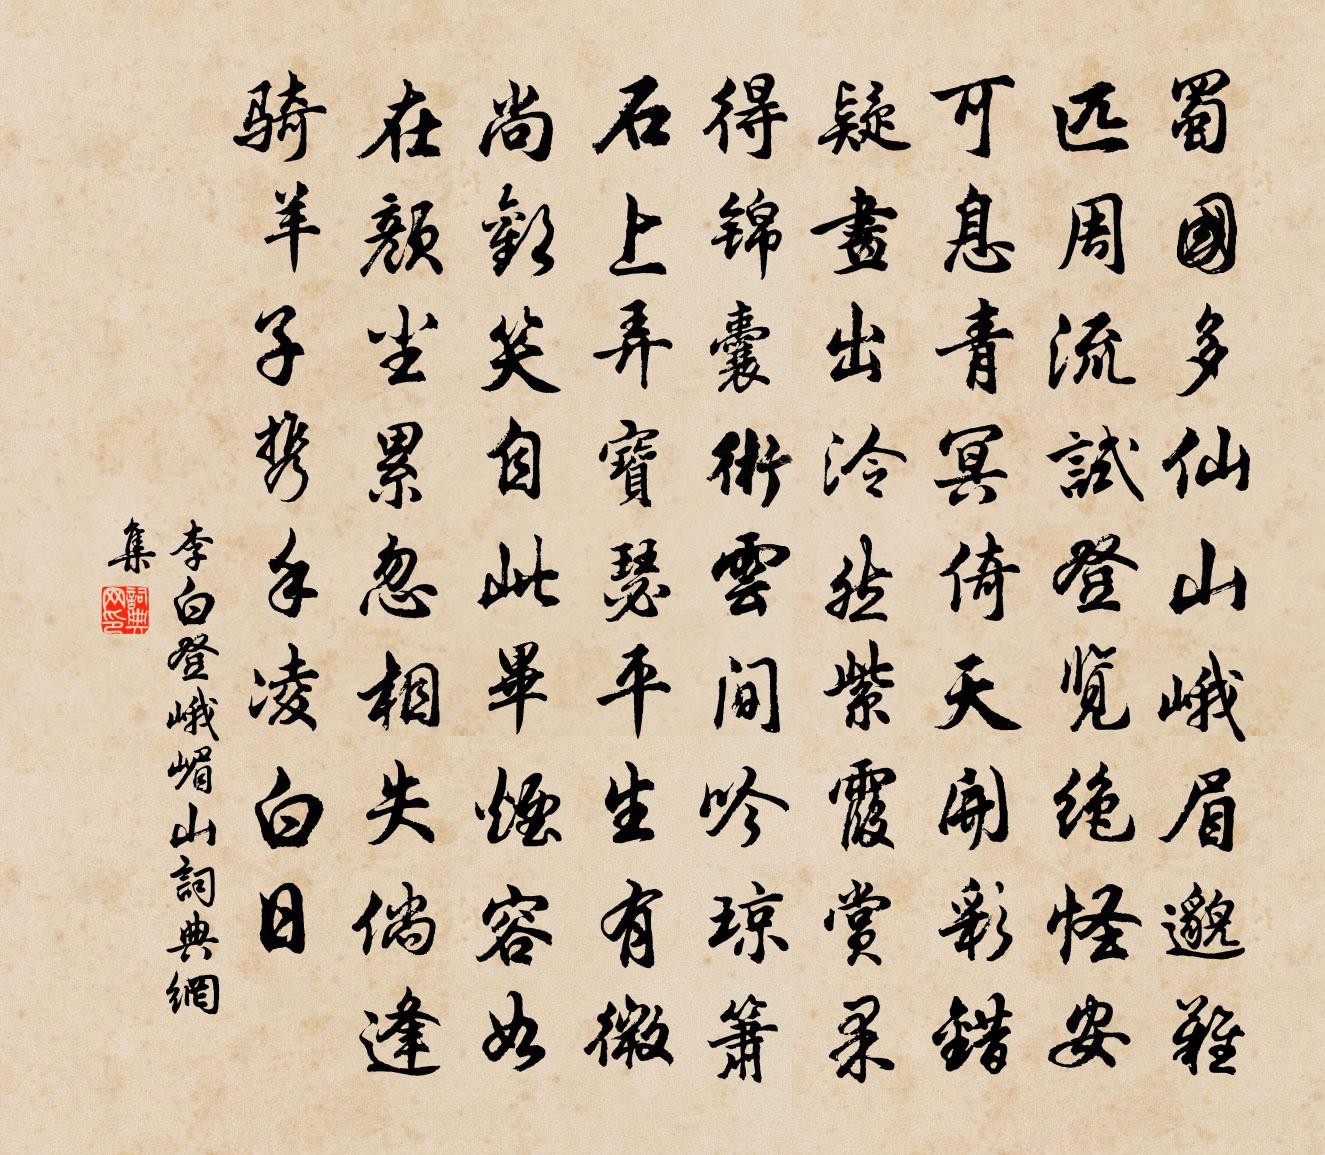 蜀國多仙山峨眉邈難
匹周流試登览絶怪安
可息青冥倚天開彩錯
疑畫出泠然紫霞賞果
得錦囊術雲間吟琼簫
石上弄寶瑟平生有微
尚歡笑自此畢煙容如
在顏尘累忽相失倘逢
騎羊子携手凌白日
李白登峨嵋山詞典網
集
詞典
网印